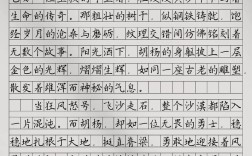 生命的传奇。那粗壮的树干，似钢铁铸就，饱
经岁月的沧桑与磨砺，纹理交错间仿佛铭刻着
无数个故事。阳光洒下，胡杨的身躯披上一层
金色的光辉，熠熠生辉，如同一座古老的雕塑，
散发着雄浑而神秘的气息。
当狂风怒号，飞沙走石，整个沙漠都陷入
一片混沌。而胡杨，却如一位无畏的勇士，稳
稳地扎根于大地，挺直脊梁，勇敢地迎接着风